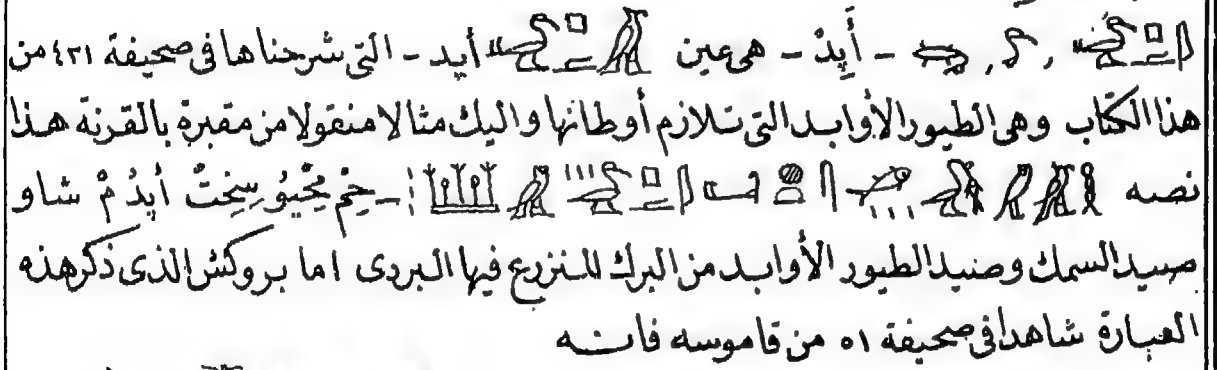 - أَپِدْ - هى عين أپد - التى شرحناها فى صحيفة ٤٣١ من
هذا الكتاب وهى الطيور الأوابد التى تلازم أوطانها واليك مثالا منقولا من مقبرة بالقرنة هذا
نصه - حِمْ مِحْيُو سِخِتْ أَپِدُ مْ شاو
صيد السمك وصنيد الطيور الأوابد من البرك المنزرع فيها البردى اما بروكش الذى ذكر هذه
العبارة شاهدا فى صحيفة ٥١ من قاموسه فانه